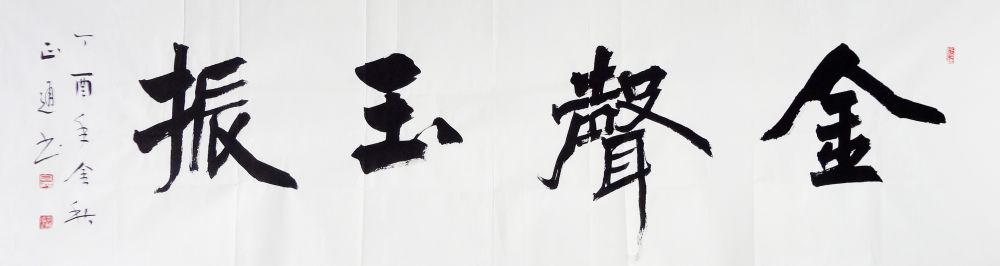 金聲玉振
丁酉年金秋
正通书